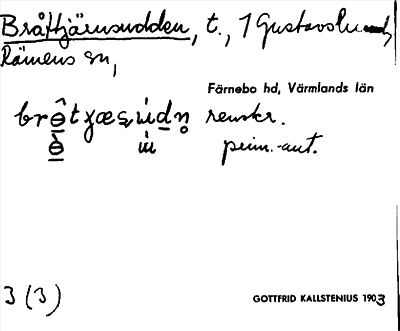 Bråttjärnsudden, t., 1 Gustavslund,
Rämens sn,
Färnebo hd, Värmlands län
renskr.
prim.-aut.
3 (3)
GOTTFRID KALLSTENIUS 1903